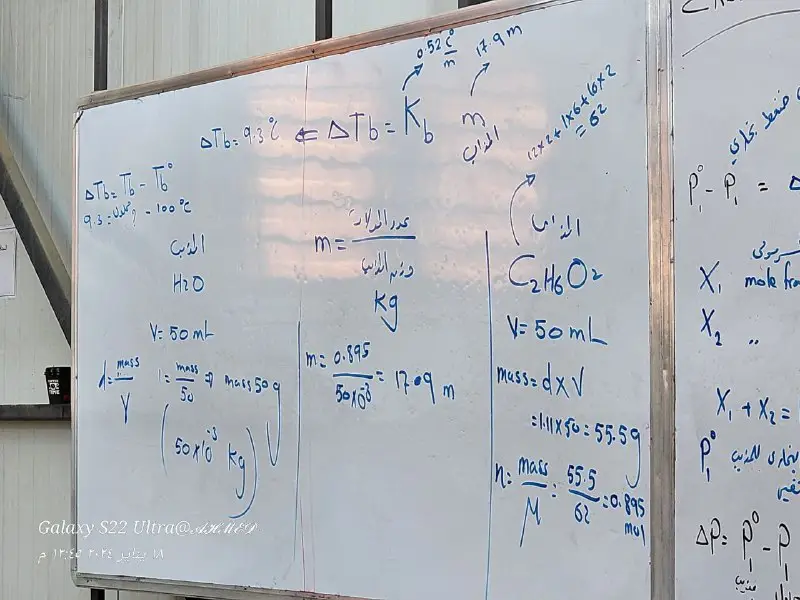 0.52 C°/m
17.9 m
ΔTb = 9.3 °C ⇐ ΔTb = Kb m
المذاب
12×2+1×6+16×2
= 62
ΔTb = Tb - Tb°
9.3 = ? - 100 °C
المذيب
H2O
V = 50 mL
d = mass/V
1 = mass/50 ⇒ mass 50 g
(50×10⁻³ kg)
m = عدد المولات/وزن المذيب
Kg
m = 0.895/50×10⁻³ = 17.09 m
المذاب
C2H6O2
V = 50 mL
mass = d×V
= 1.11×50 = 55.5 g
n = mass/M = 55.5/62 = 0.895 mol
ضغط بخاري
P₁° - P₁ = Δ
X₁ mole fra
X₂ "
X₁ + X₂ =
P₁°
ΔP = P₁° - P₁
مذيب
Galaxy S22 Ultra@AHMED
١٨ يناير ٢٠٢٤ ١٢:٤٥ م